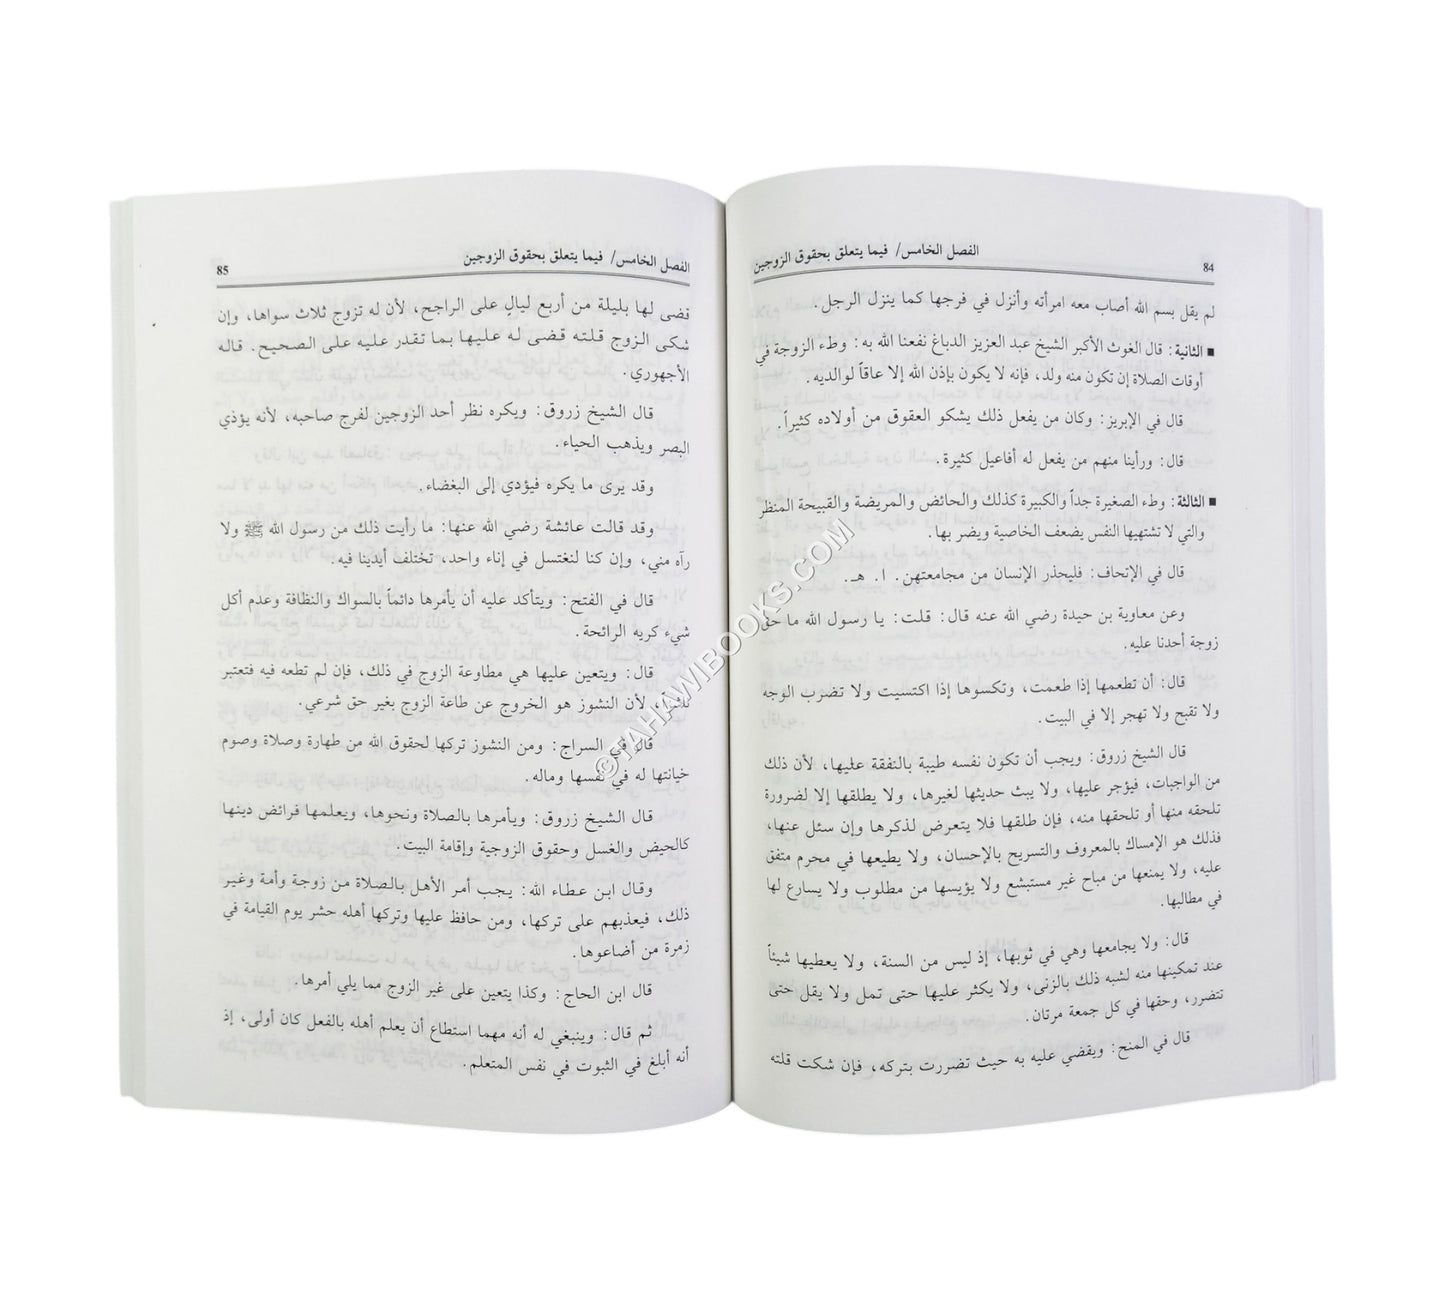 84
الفصل الخامس/ فيما يتعلق بحقوق الزوجين
لم يقل بسم الله أصاب معه امرأته وأنزل في فرجها كما ينزل الرجل.
■ الثانية: قال الغوث الأكبر الشيخ عبد العزيز الدباغ نفعنا الله به: وطء الزوجة في
أوقات الصلاة إن تكون منه ولد، فإنه لا يكون بإذن الله إلا عاقاً لوالديه.
قال في الإبريز: وكان من يفعل ذلك يشكو العقوق من أولاده كثيراً.
قال: ورأينا منهم من يفعل له أفاعيل كثيرة.
■ الثالثة: وطء الصغيرة جداً والكبيرة كذلك والحائض والمريضة والقبيحة المنظر
والتي لا تشتهيها النفس يضعف الخاصية ويضر بها.
قال في الإتحاف: فليحذر الإنسان من مجامعتهن. ا. هـ.
وعن معاوية بن حيدة رضي الله عنه قال: قلت: يا رسول الله ما حق
زوجة أحدنا عليه.
قال: أن تطعمها إذا طعمت، وتكسوها إذا اكتسيت ولا تضرب الوجه
ولا تقبح ولا تهجر إلا في البيت.
قال الشيخ زروق: ويجب أن تكون نفسه طيبة بالنفقة عليها، لأن ذلك
من الواجبات، فيؤجر عليها، ولا يبث حديثها لغيرها، ولا يطلقها إلا لضرورة
تلحقه منها أو تلحقها منه، فإن طلقها فلا يتعرض لذكرها وإن سئل عنها،
فذلك هو الإمساك بالمعروف والتسريح بالإحسان، ولا يطيعها في محرم متفق
عليه، ولا يمنعها من مباح غير مستبشع ولا يؤيسها من مطلوب ولا يسارع لها
في مطالبها.
قال: ولا يجامعها وهي في ثوبها، إذ ليس من السنة، ولا يعطيها شيئاً
عند تمكينها منه لشبه ذلك بالزنى، ولا يكثر عليها حتى تمل ولا يقل حتى
تتضرر، وحقها في كل جمعة مرتان.
قال في المنح: ويقضي عليه به حيث تضررت بتركه، فإن شكت قلته
الفصل الخامس/ فيما يتعلق بحقوق الزوجين
85
قضى لها بليلة من أربع ليالٍ على الراجح، لأن له تزوج ثلاث سواها، وإن
شكى الزوج قلته قضى له عليها بما تقدر عليه على الصحيح. قاله
الأجهوري.
قال الشيخ زروق: ويكره نظر أحد الزوجين لفرج صاحبه، لأنه يؤذي
البصر ويذهب الحياء.
وقد يرى ما يكره فيؤدي إلى البغضاء.
وقد قالت عائشة رضي الله عنها: ما رأيت ذلك من رسول الله ﷺ ولا
رآه مني، وإن كنا لنغتسل في إناء واحد، تختلف أيدينا فيه.
قال في الفتح: ويتأكد عليه أن يأمرها دائماً بالسواك والنظافة وعدم أكل
شيء كريه الرائحة.
قال: ويتعين عليها هي مطاوعة الزوج في ذلك، فإن لم تطعه فيه فتعتبر
ناشز، لأن النشوز هو الخروج عن طاعة الزوج بغير حق شرعي.
قال في السراج: ومن النشوز تركها لحقوق الله من طهارة وصلاة وصوم
خيانتها له في نفسها وماله.
قال الشيخ زروق: ويأمرها بالصلاة ونحوها، ويعلمها فرائض دينها
كالحيض والغسل وحقوق الزوجية وإقامة البيت.
وقال ابن عطاء الله: يجب أمر الأهل بالصلاة من زوجة وأمة وغير
ذلك، فيعذبهم على تركها، ومن حافظ عليها وتركها أهله حشر يوم القيامة في
زمرة من أضاعوها.
قال ابن الحاج: وكذا يتعين على غير الزوج مما يلي أمرها.
ثم قال: وينبغي له أنه مهما استطاع أن يعلم أهله بالفعل كان أولى، إذ
أنه أبلغ في الثبوت في نفس المتعلم.
©TAHAWIBOOKS.COM